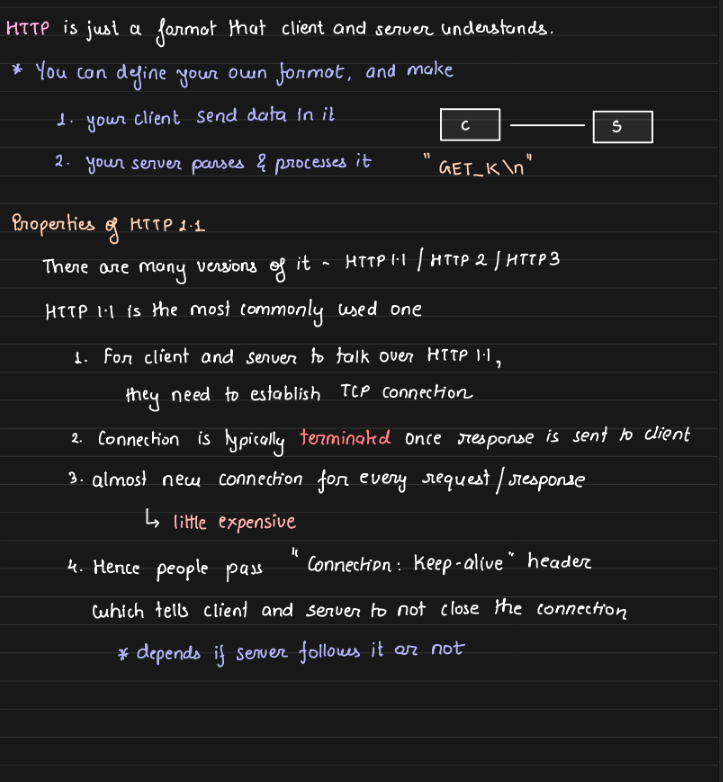 HTTP is just a format that client and server understands.
* You can define your own format, and make
1. your client send data in it
2. your server parses & processes it
C
S
"GET_K\n"
Properties of HTTP 1.1
There are many versions of it - HTTP 1.1 / HTTP 2 / HTTP 3
HTTP 1.1 is the most commonly used one
1. For client and server to talk over HTTP 1.1,
they need to establish TCP connection
2. Connection is typically terminated once response is sent to client
3. almost new connection for every request/response
↳ little expensive
4. Hence people pass "Connection: Keep-alive" header
which tells client and server to not close the connection
* depends if server follows it or not